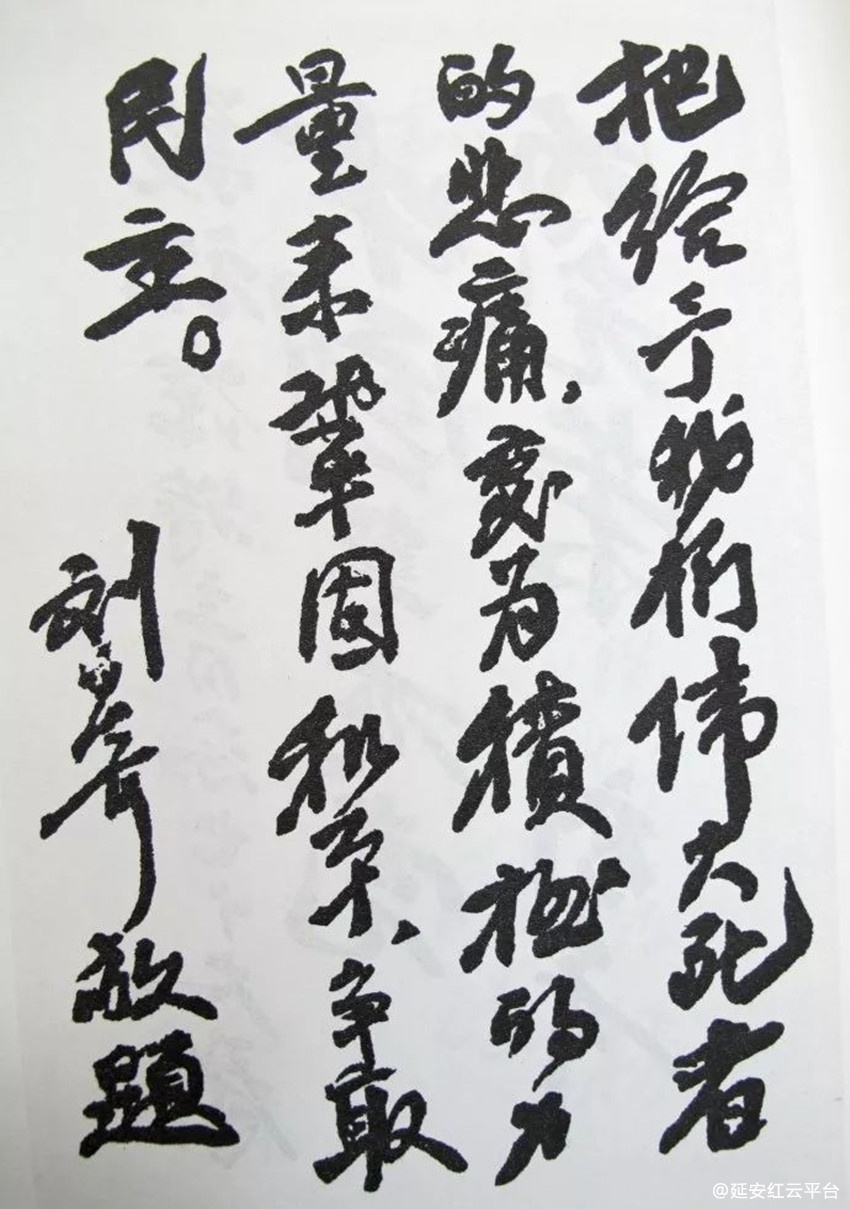 把给予我们伟大死者
的悲痛，变为積極的力
量来鞏固和平、争取
民主。
刘少奇敬題
@延安红云平台